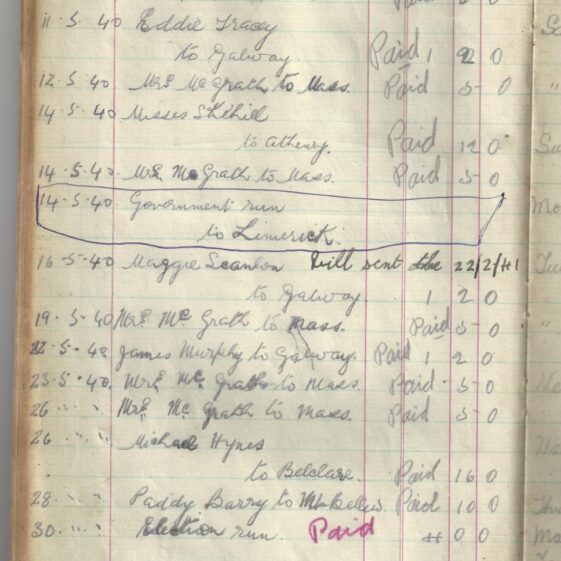 11.5.40 Eddie Tracey
to Galway. Paid 1 2 0
12.5.40 Mrs McGrath to Mass. Paid 5 0
14.5.40 Misses
to Athenry. Paid 12 0
14.5.40 Mrs. McGrath to Mass. Paid 5 0
14.5.40 Government run
to Limerick.
16.5.40 Maggie Scanlon bill sent the 22/2/41
to Galway. 1 2 0
19.5.40 Mrs. Mc Grath to Mass. Paid 5 0
22.5.40 James Murphy to Galway. Paid 1 2 0
23.5.40 Mrs. Mc Grath to Mass. Paid 5 0
26 " " Mrs. Mc Grath to Mass. Paid 5 0
26 " " Michael Hynes
to Belclare. Paid 16 0
28 " " Paddy Barry to Paid 10 0
30 " " Election run. Paid 4 0 0